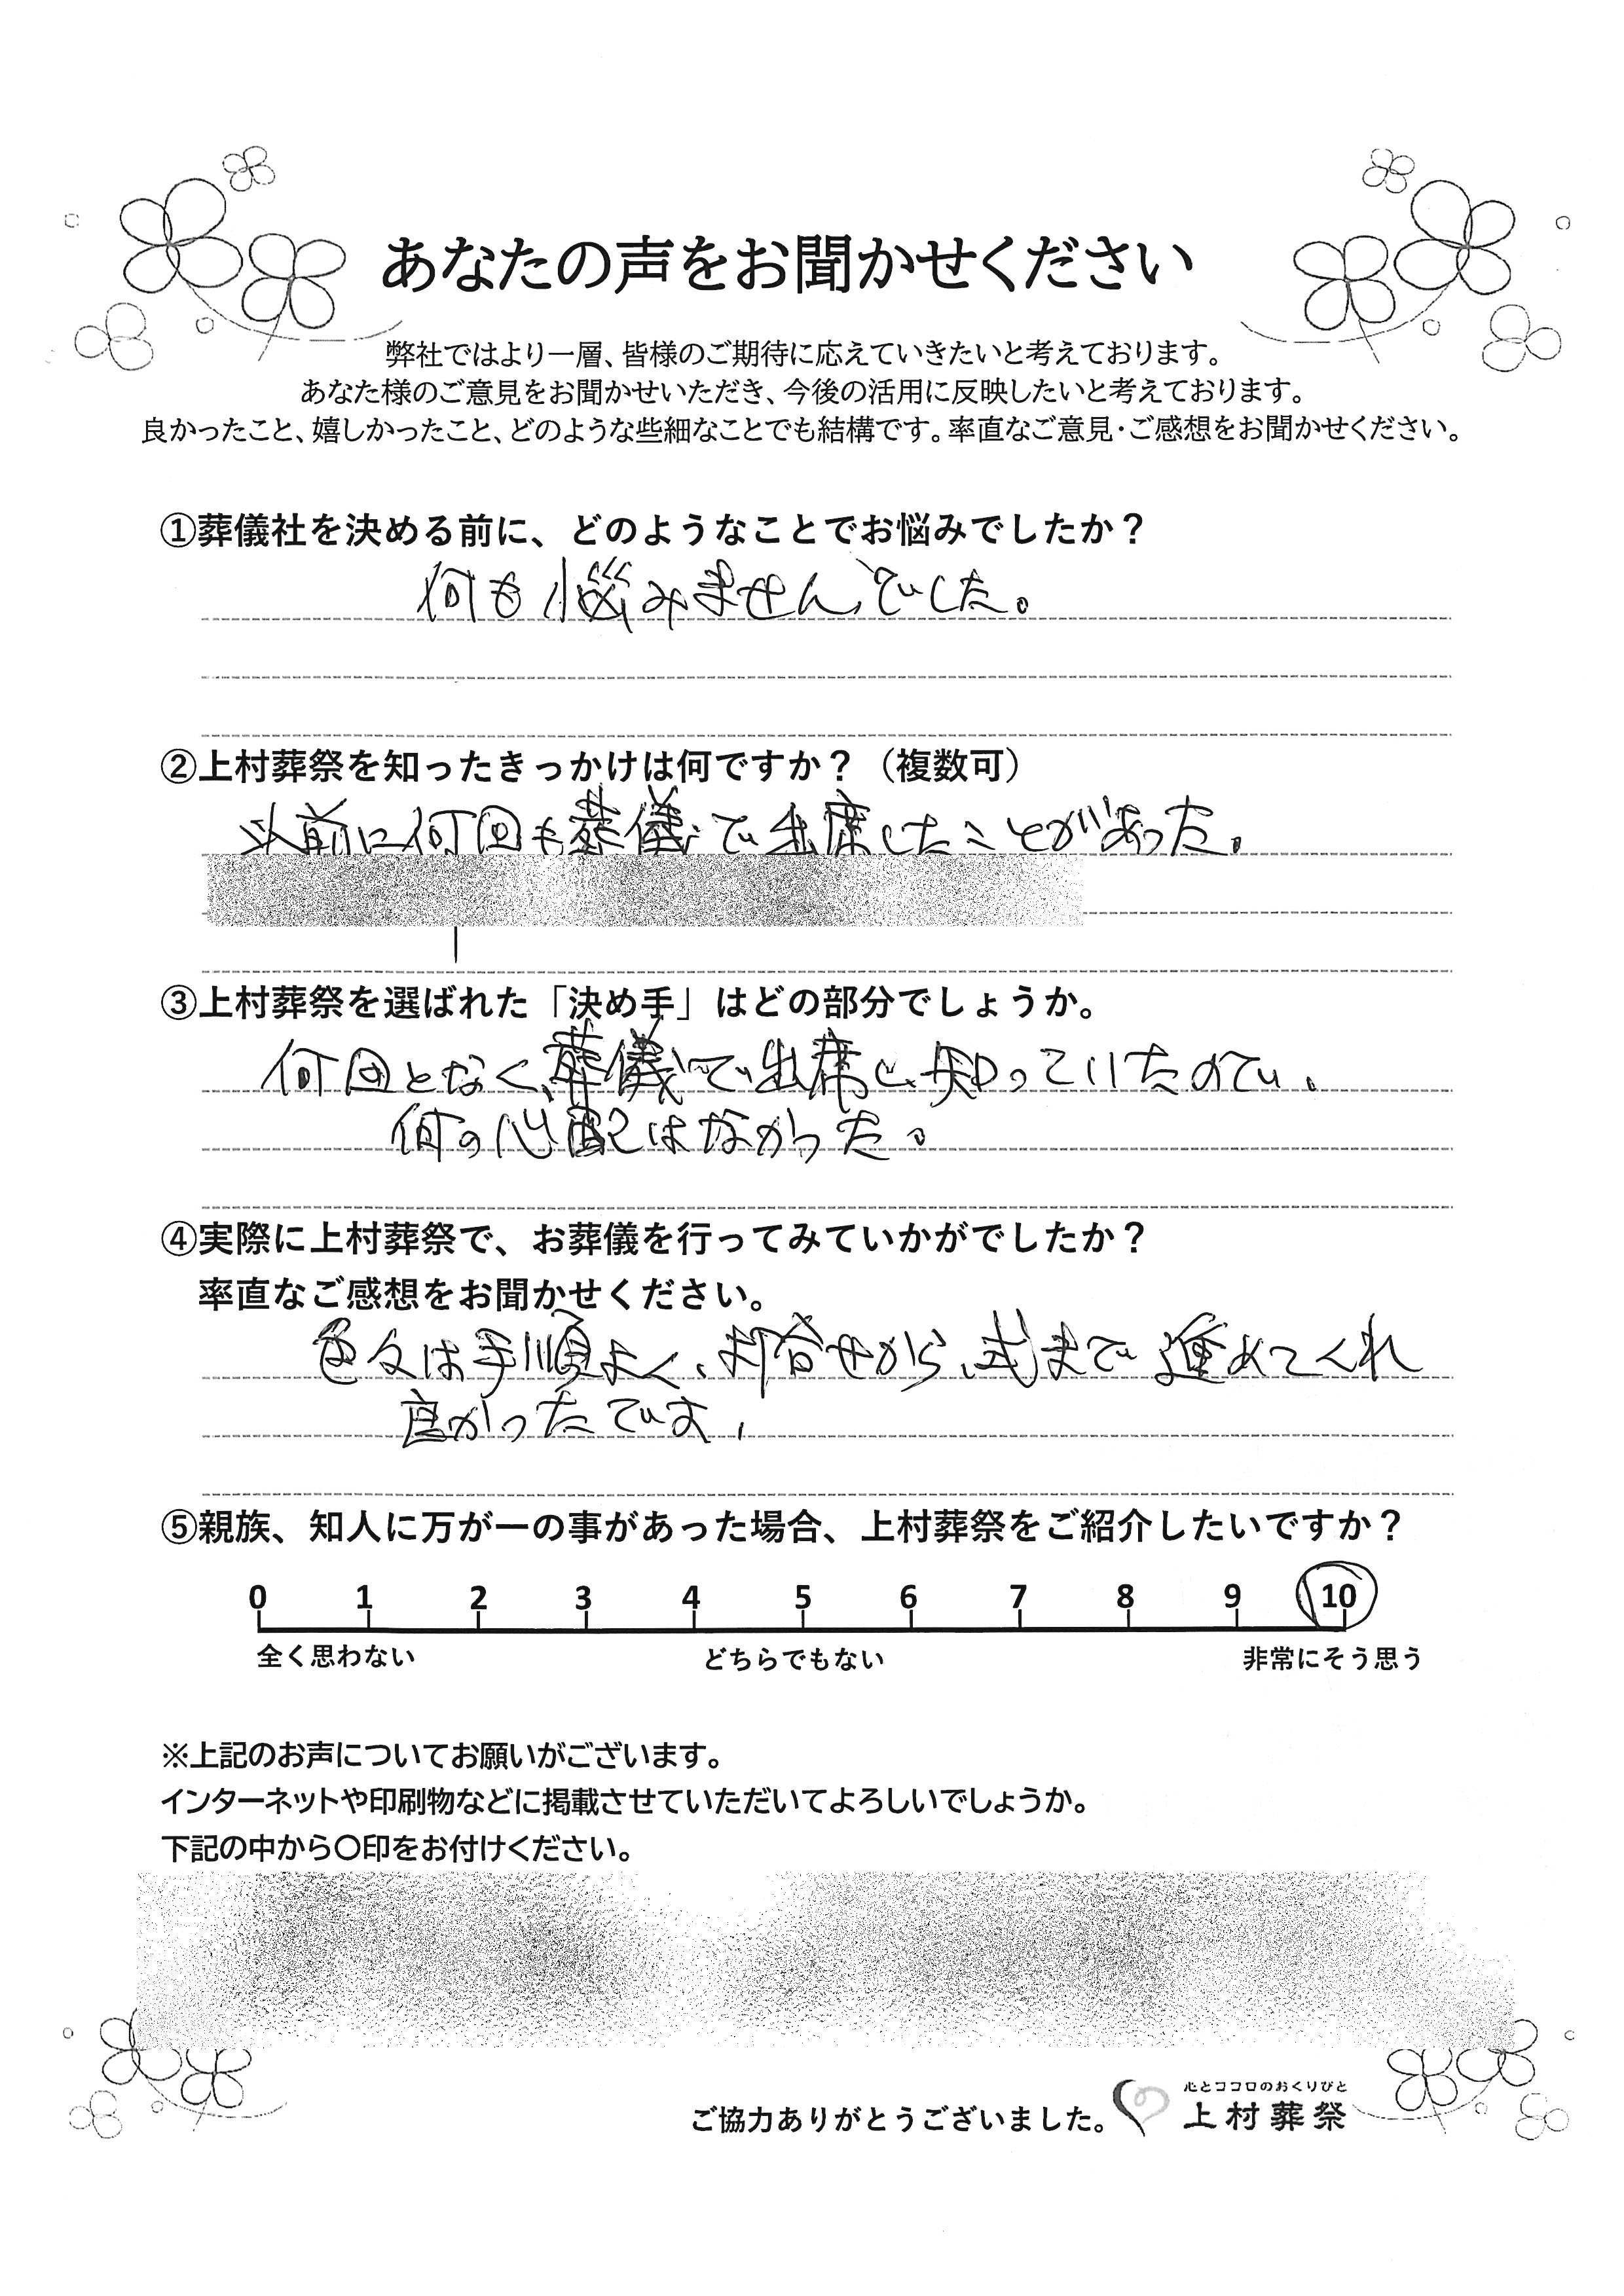 あなたの声をお聞かせください
弊社ではより一層、皆様のご期待に応えていきたいと考えております。
あなた様のご意見をお聞かせいただき、今後の活用に反映したいと考えております。
良かったこと、嬉しかったこと、どのような些細なことでも結構です。率直なご意見・ご感想をお聞かせください。
①葬儀社を決める前に、どのようなことでお悩みでしたか？
何も悩みませんでした。
②上村葬祭を知ったきっかけは何ですか？（複数可）
以前に何回も葬儀で出席したことがあった。
③上村葬祭を選ばれた「決め手」はどの部分でしょうか。
何回となく、葬儀で出席し、知っていたので、
何の心配はなかった。
④実際に上村葬祭で、お葬儀を行ってみていかがでしたか？
率直なご感想をお聞かせください。
色々は手順よく、打合せから、式まで進めてくれ
良かったです、
⑤親族、知人に万が一の事があった場合、上村葬祭をご紹介したいですか？
0 1 2 3 4 5 6 7 8 9 10
全く思わない どちらでもない 非常にそう思う
※上記のお声についてお願いがございます。
インターネットや印刷物などに掲載させていただいてよろしいでしょうか。
下記の中から〇印をお付けください。
心とココロのおくりびと
ご協力ありがとうございました。 上村葬祭